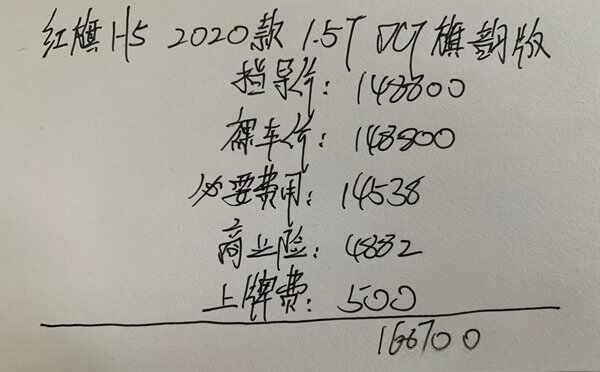 红旗H5 2020款 1.5T DCT旗韵版
指导价：148800
裸车价：148800
必要费用：14538
商业险：4882
上牌费：500
166700